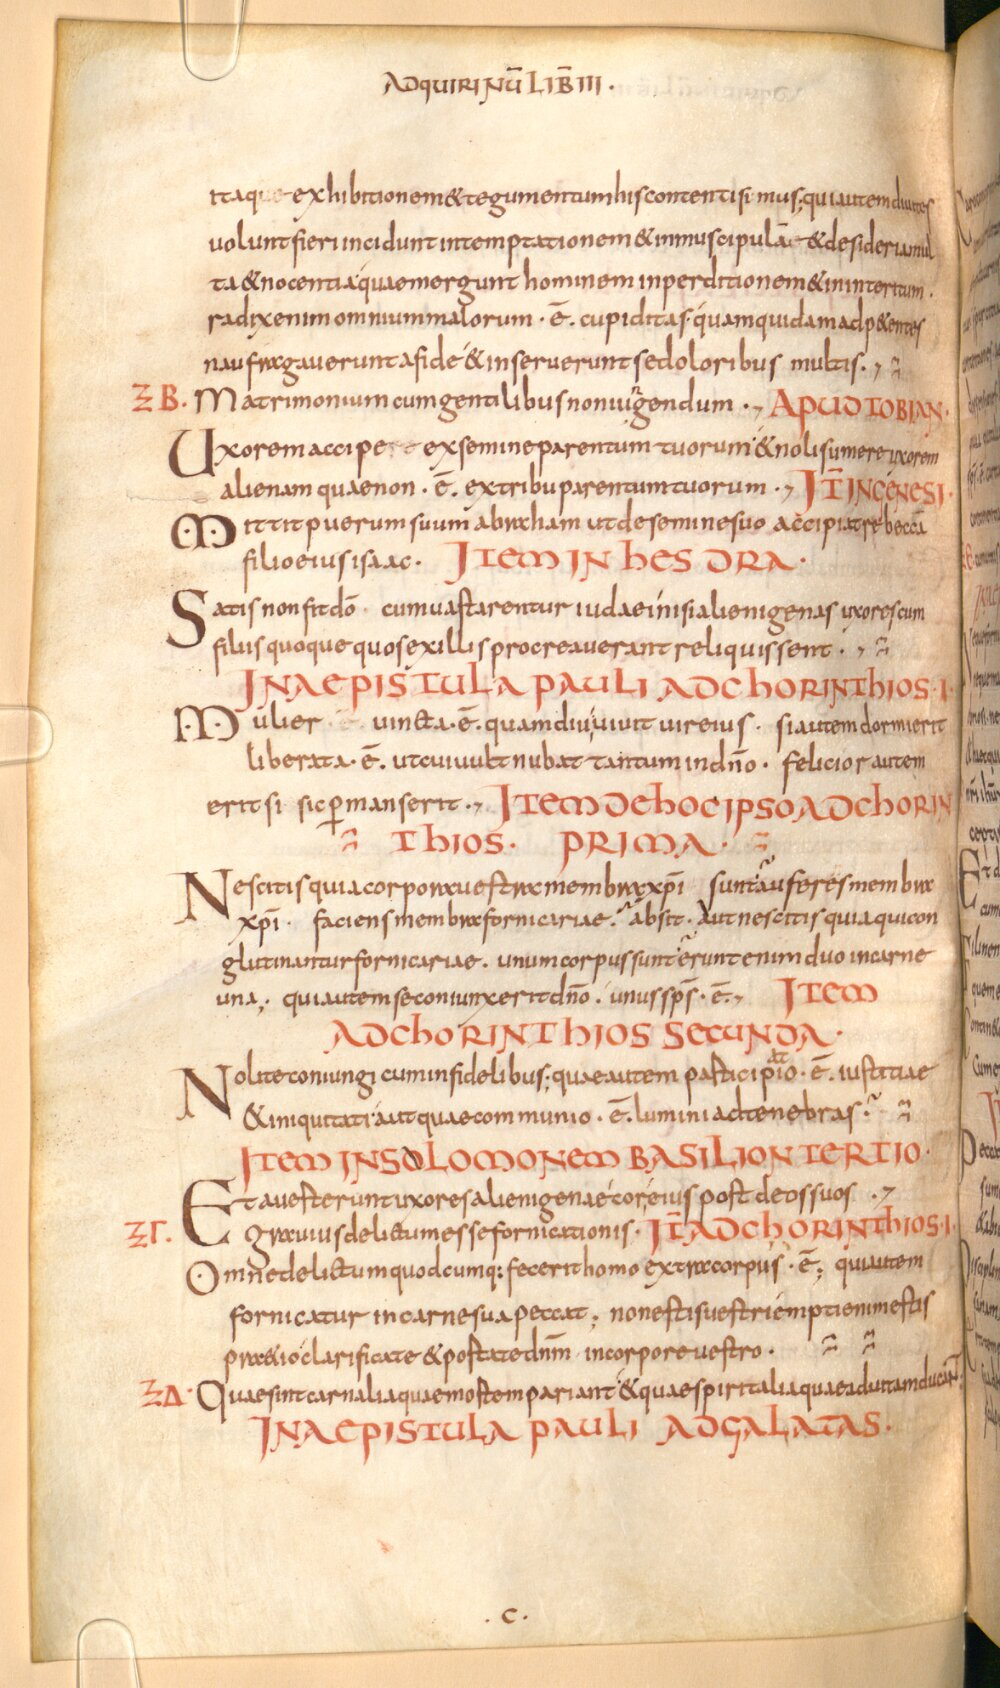 ADQUIRINŪ LIB̄ III·
itaque exhibitionem & tegumentum his contenti simus; qui autem diuites
uolunt fieri incidunt in temptationem & in muscipulā & desideria mul
ta & nocentia quae mergunt hominem in perditionem & in interitum.
radix enim omnium malorum · ē. cupiditas· quam quidam adp&entes
naufragauerunt a fide & inseruerunt se doloribus multis.
ΞB. Matrimonium cum gentilibus non iurgendum · APUD TOBIAN·
Uxorem accipe ex semine parentum tuorum & noli sumere uxorem
alienam quae non · ē. ex tribu parentum tuorum · IT̄ IN GENESI·
Mittit puerum suum abraham ut de semine suo accipiat rebeccā
filio eius isaac· ITEM IN HESDRA·
Satis non fit dō cum uastarentur iudaei nisi alienigenas uxores cum
filiis quoque quos ex illis procreauerant reliquissent ·
IN AEPISTULA PAULI AD CHORINTHIOS·I·
Mulier uincta·ē. quamdiu uiuit uir eius · si autem dormierit
liberata·ē. ut cui uult nubat tantum in dn̄o · felicior autem
erit si sic p̄manserit · ITEM DE HOC IPSO AD CHORIN
THIOS· PRIMA·
Nescitis quia corpora uestra membra xp̄i sunt auferes membra
xp̄i · faciens membra fornicariae. absit· Aut nescitis quia qui con
glutinantur fornicariae. unum corpus sunt erunt enim duo in carne
una; qui autem se coniunxerit dn̄o. unus sp̄s·ē. ITEM
AD CHORINTHIOS SECUNDA·
Nolite coniungi cum infidelibus; quae autem participatio · ē. iustitiae
& iniquitati aut quae communio · ē. lumini ad tenebras·
ITEM IN SOLOMONEM BASILION TERTIO·
Et auerterunt uxores alienigenae cor eius post deos suos ·
ΞΓ. graui us delictum esse fornicationis· IT̄ AD CHORINTHIOS·I·
Omne delictum quodcumq: fecerit homo extra corpus · ē; qui autem
fornicatur in carne sua peccat; non estis uestri empti enim estis
praetio clarificate & portate dn̄m in corpore uestro ·
ΞΔ· Quae sint carnalia quae mortem pariant & quae spiritalia quae ad uitam ducant
IN AEPISTULA PAULI AD GALATAS·
·C·